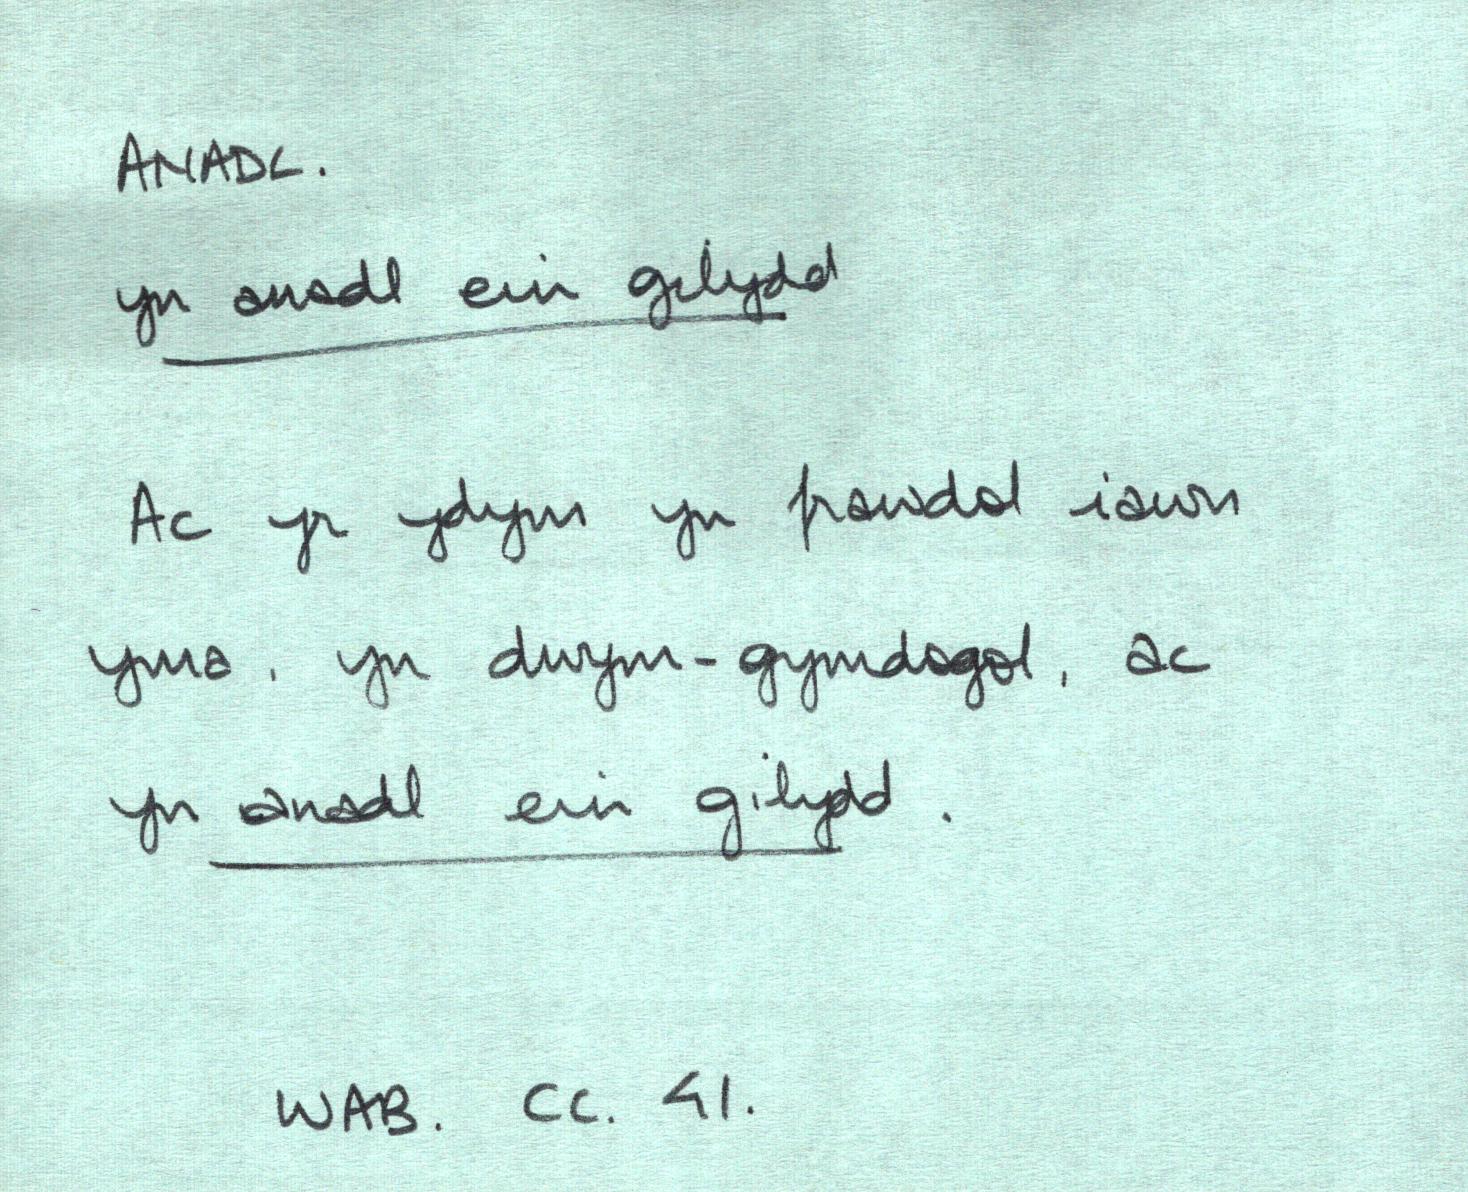 ANADL.
yn anadl ein gilydd
Ac yr ydym yn frawdol iawn
yma, yn dwym-gymdogol, ac
yn anadl ein gilydd.
WAB. CC. 41.